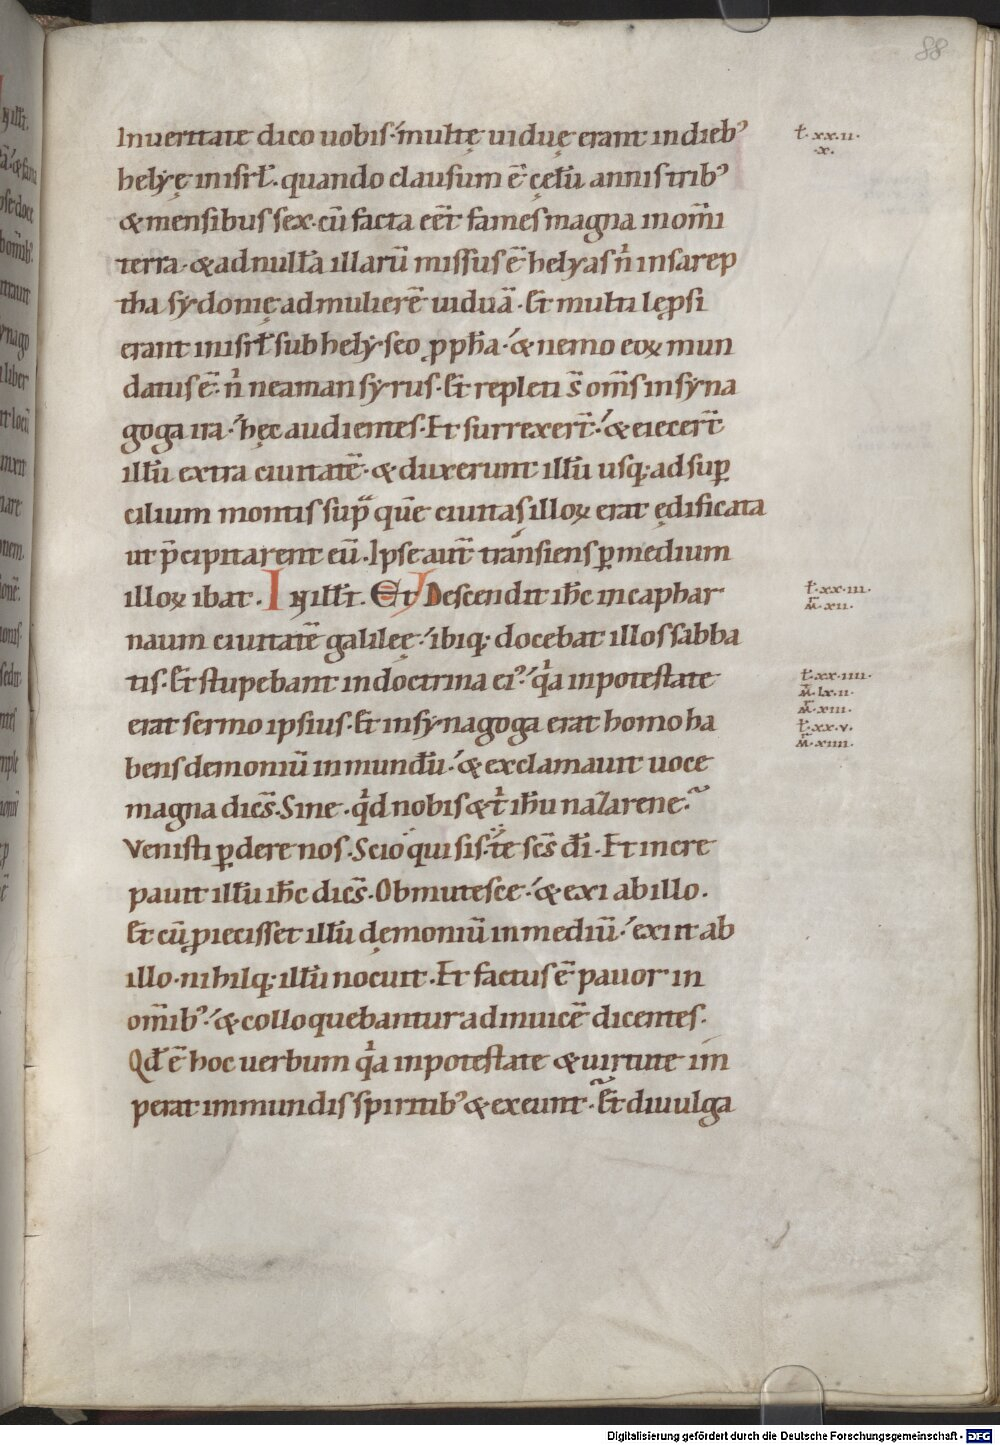 88
Inueritate dico uobis· multę uiduę erant indieb'
helyę inisrł· quando clausum ē cęlū annis trib'
& mensibus sex· cū facta eēt fames magna in om̄i
terra· & ad nullā illarū missus ē helyas n̄ insarep
tha sydonię ad mulierē uiduā· Et multi lępsi
erant inisrł sub helyseo ꝓph̄a· & nemo eoꝝ mun
datus ē· n̄ neaman syrus· Et repleti s̄ om̄s insyna
goga ira· hęc audientes· Et surrexer̄t· & eiecer̄t
illū extra ciuitatē· & duxerunt illū usq; ad suꝑ
cilium montis sup̄ quē ciuitas illoꝝ erat ędificata
ut p̄cipitarent eū· Ipse aut̄ transiens ꝑ medium
illoꝝ ibat· IN ill̄t· Et Descendit ih̄c incaphar
naum ciuitatē galileę· ibiq; docebat illos sabba
tis· Et stupebant indoctrina ei'· q̇a inpotestate
erat sermo ipsius· Et insynagoga erat homo ha
bens demoniū inmundū· & exclamauit uoce
magna dicēs· Sine· q̇d nobis & t̄ ih̄u nazarene·
Venisti ꝑdere nos· Scio qui sis· te sc̄s dī· Et incre
pauit illū ih̄c dicēs· Obmutesce· & exi ab illo·
Et cū ꝓiecisset illū dęmoniū inmediū· exiit ab
illo· nihilq; illū nocuit· Et factus ē pauor in
om̄ib'· & colloquebantur adinuicē dicentes·
Qd̄ ē hoc uerbum q̇a inpotestate & uirtute im
perat immundis spiritib' & exeunt· Et diuulga
ł·xx·ii·
·x·
ł·xx·iii·
m̄·xii·
ł·xx·iiii·
m̄·lx·ii·
m̄·xiii·
ł·xx·v·
m̄·xiiii·
Digitalisierung gefördert durch die Deutsche Forschungsgemeinschaft - DFG